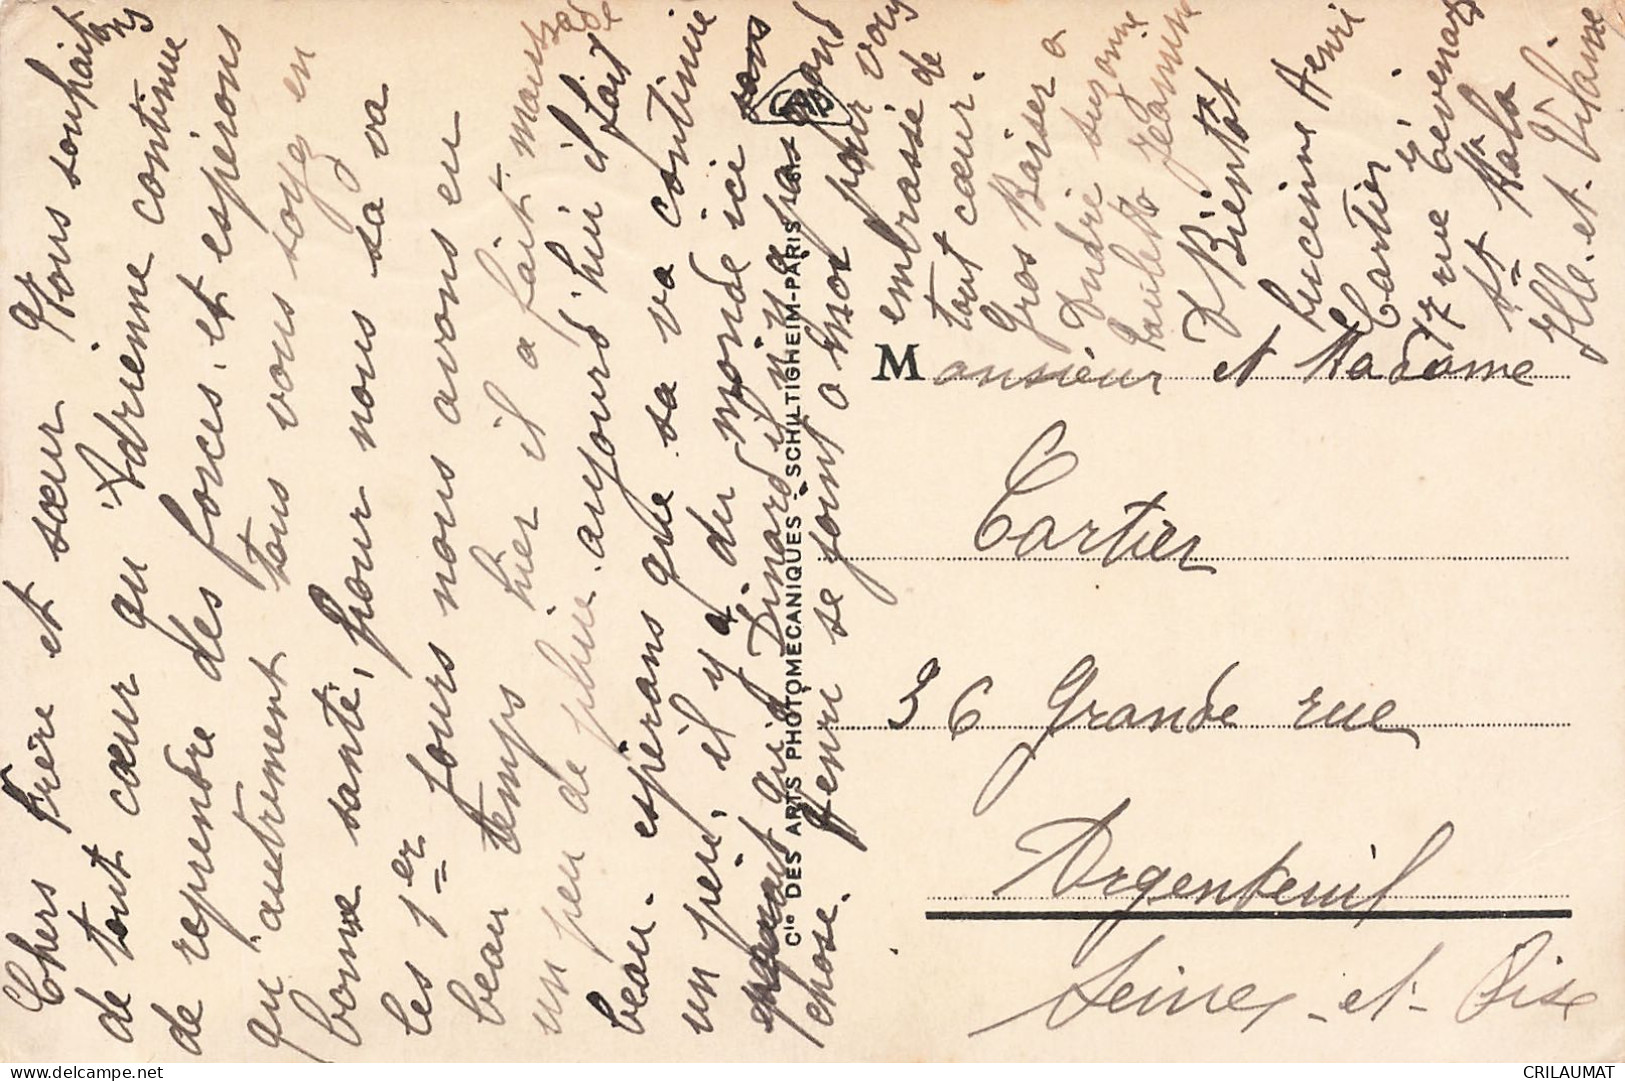 Chers Frère et sœur Nous souhaitons
de tout cœur qu'Adrienne continue
de reprendre des forces, et espérons
qu'autrement tous vous soyez en
bonne santé, pour nous sa va
les 1er jours nous avons eu
beau temps hier il a fait
un peu de pluie. aujourd'hui il fait
beau. espérans que sa va continué
un peu, il y a du monde ici sans
qui Dinard il n'y a pas grand
chose. Henri se joint a moi pour vous
embrassé de
tout cœur.
Gros Baiser a
André Suzanne
Paulette Jeannine
A Bientôt
Lucienne Henri
Cartier
17 rue Tévenard
St Malo
Ille et Vilaine
Cie DES ARTS PHOTOMECANIQUES - SCHILTIGHEIM-PARIS
Monsieur et Madame
Cartier
36 Grande rue
Argenteuil
Seine-et-Oise
delcampe.net
CRILAUMAT